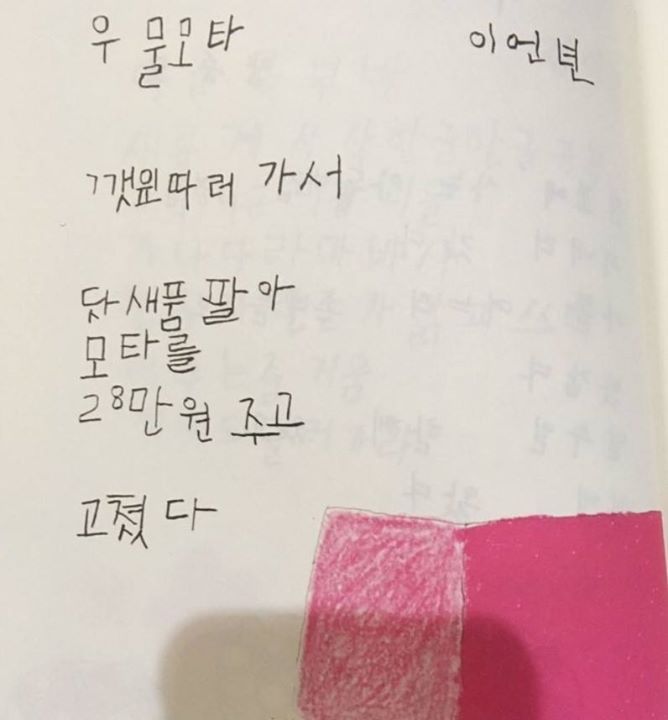 우 물모타 이언년
깻잎따러 가서
닷새품 팔아
모타를
28만원 주고
고쳤다